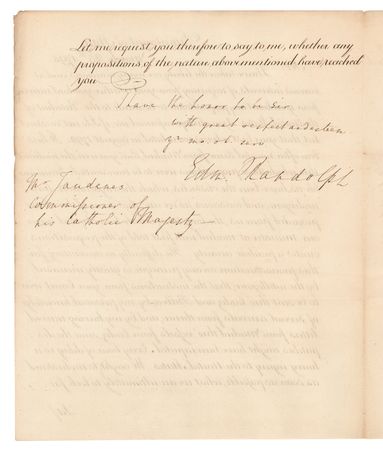 Let me request you therefore to say to me, whether any
propositions of the nature abovementioned have reached
you
I have the honor to be sir
with great respect
yr. mo. ob. serv
Edm. Randolph
Mr Jaudenes
Commissioner of
his Catholic Majesty